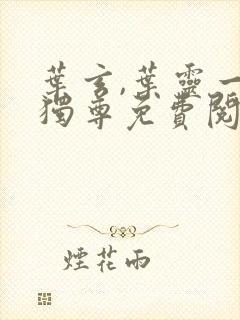 葉玄,葉靈一
獨尊免費閱
煙花雨